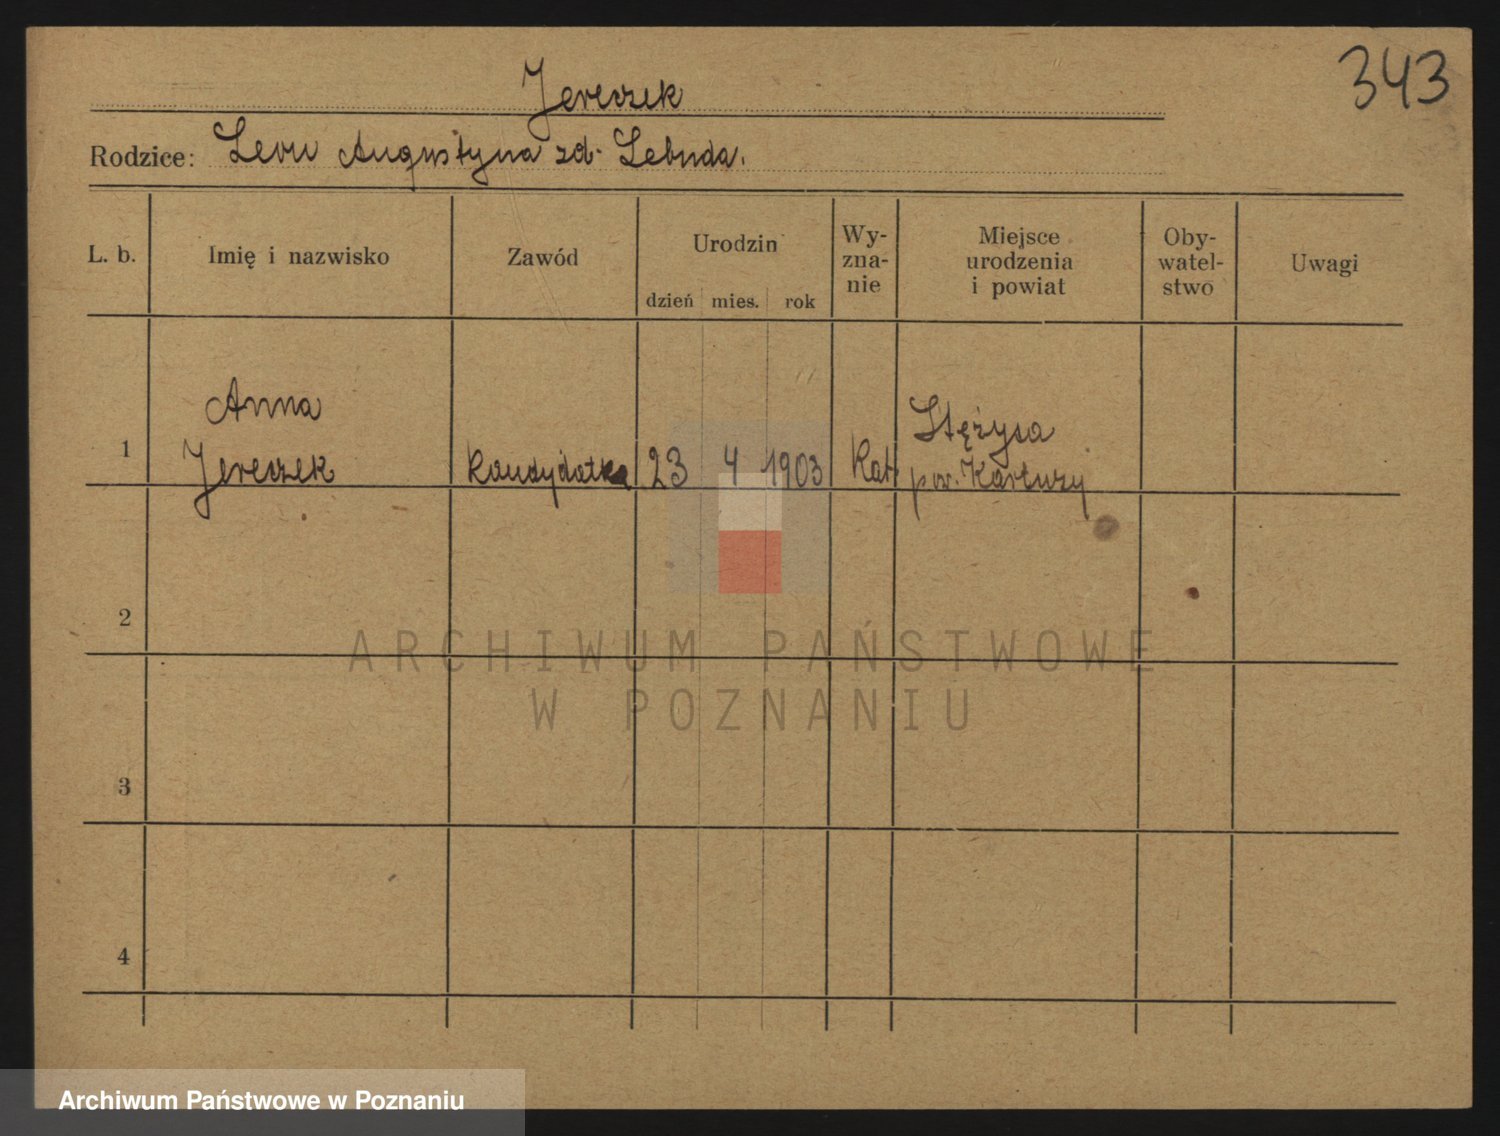 343
Jereczek
Rodzice: Leon Augustyna zd. Lebuda.
L. b. Imię i nazwisko Zawód Urodzin dzień mies. rok Wy-zna-nie Miejsce urodzenia i powiat Oby-watel-stwo Uwagi
Anna
Jereczek
1 Kandydatka 23 4 1903 Kat.
Stężyca
pow. Kartuzy
2
ARCHIWUM PAŃSTWOWE
W POZNANIU
3
4
Archiwum Państwowe w Poznaniu